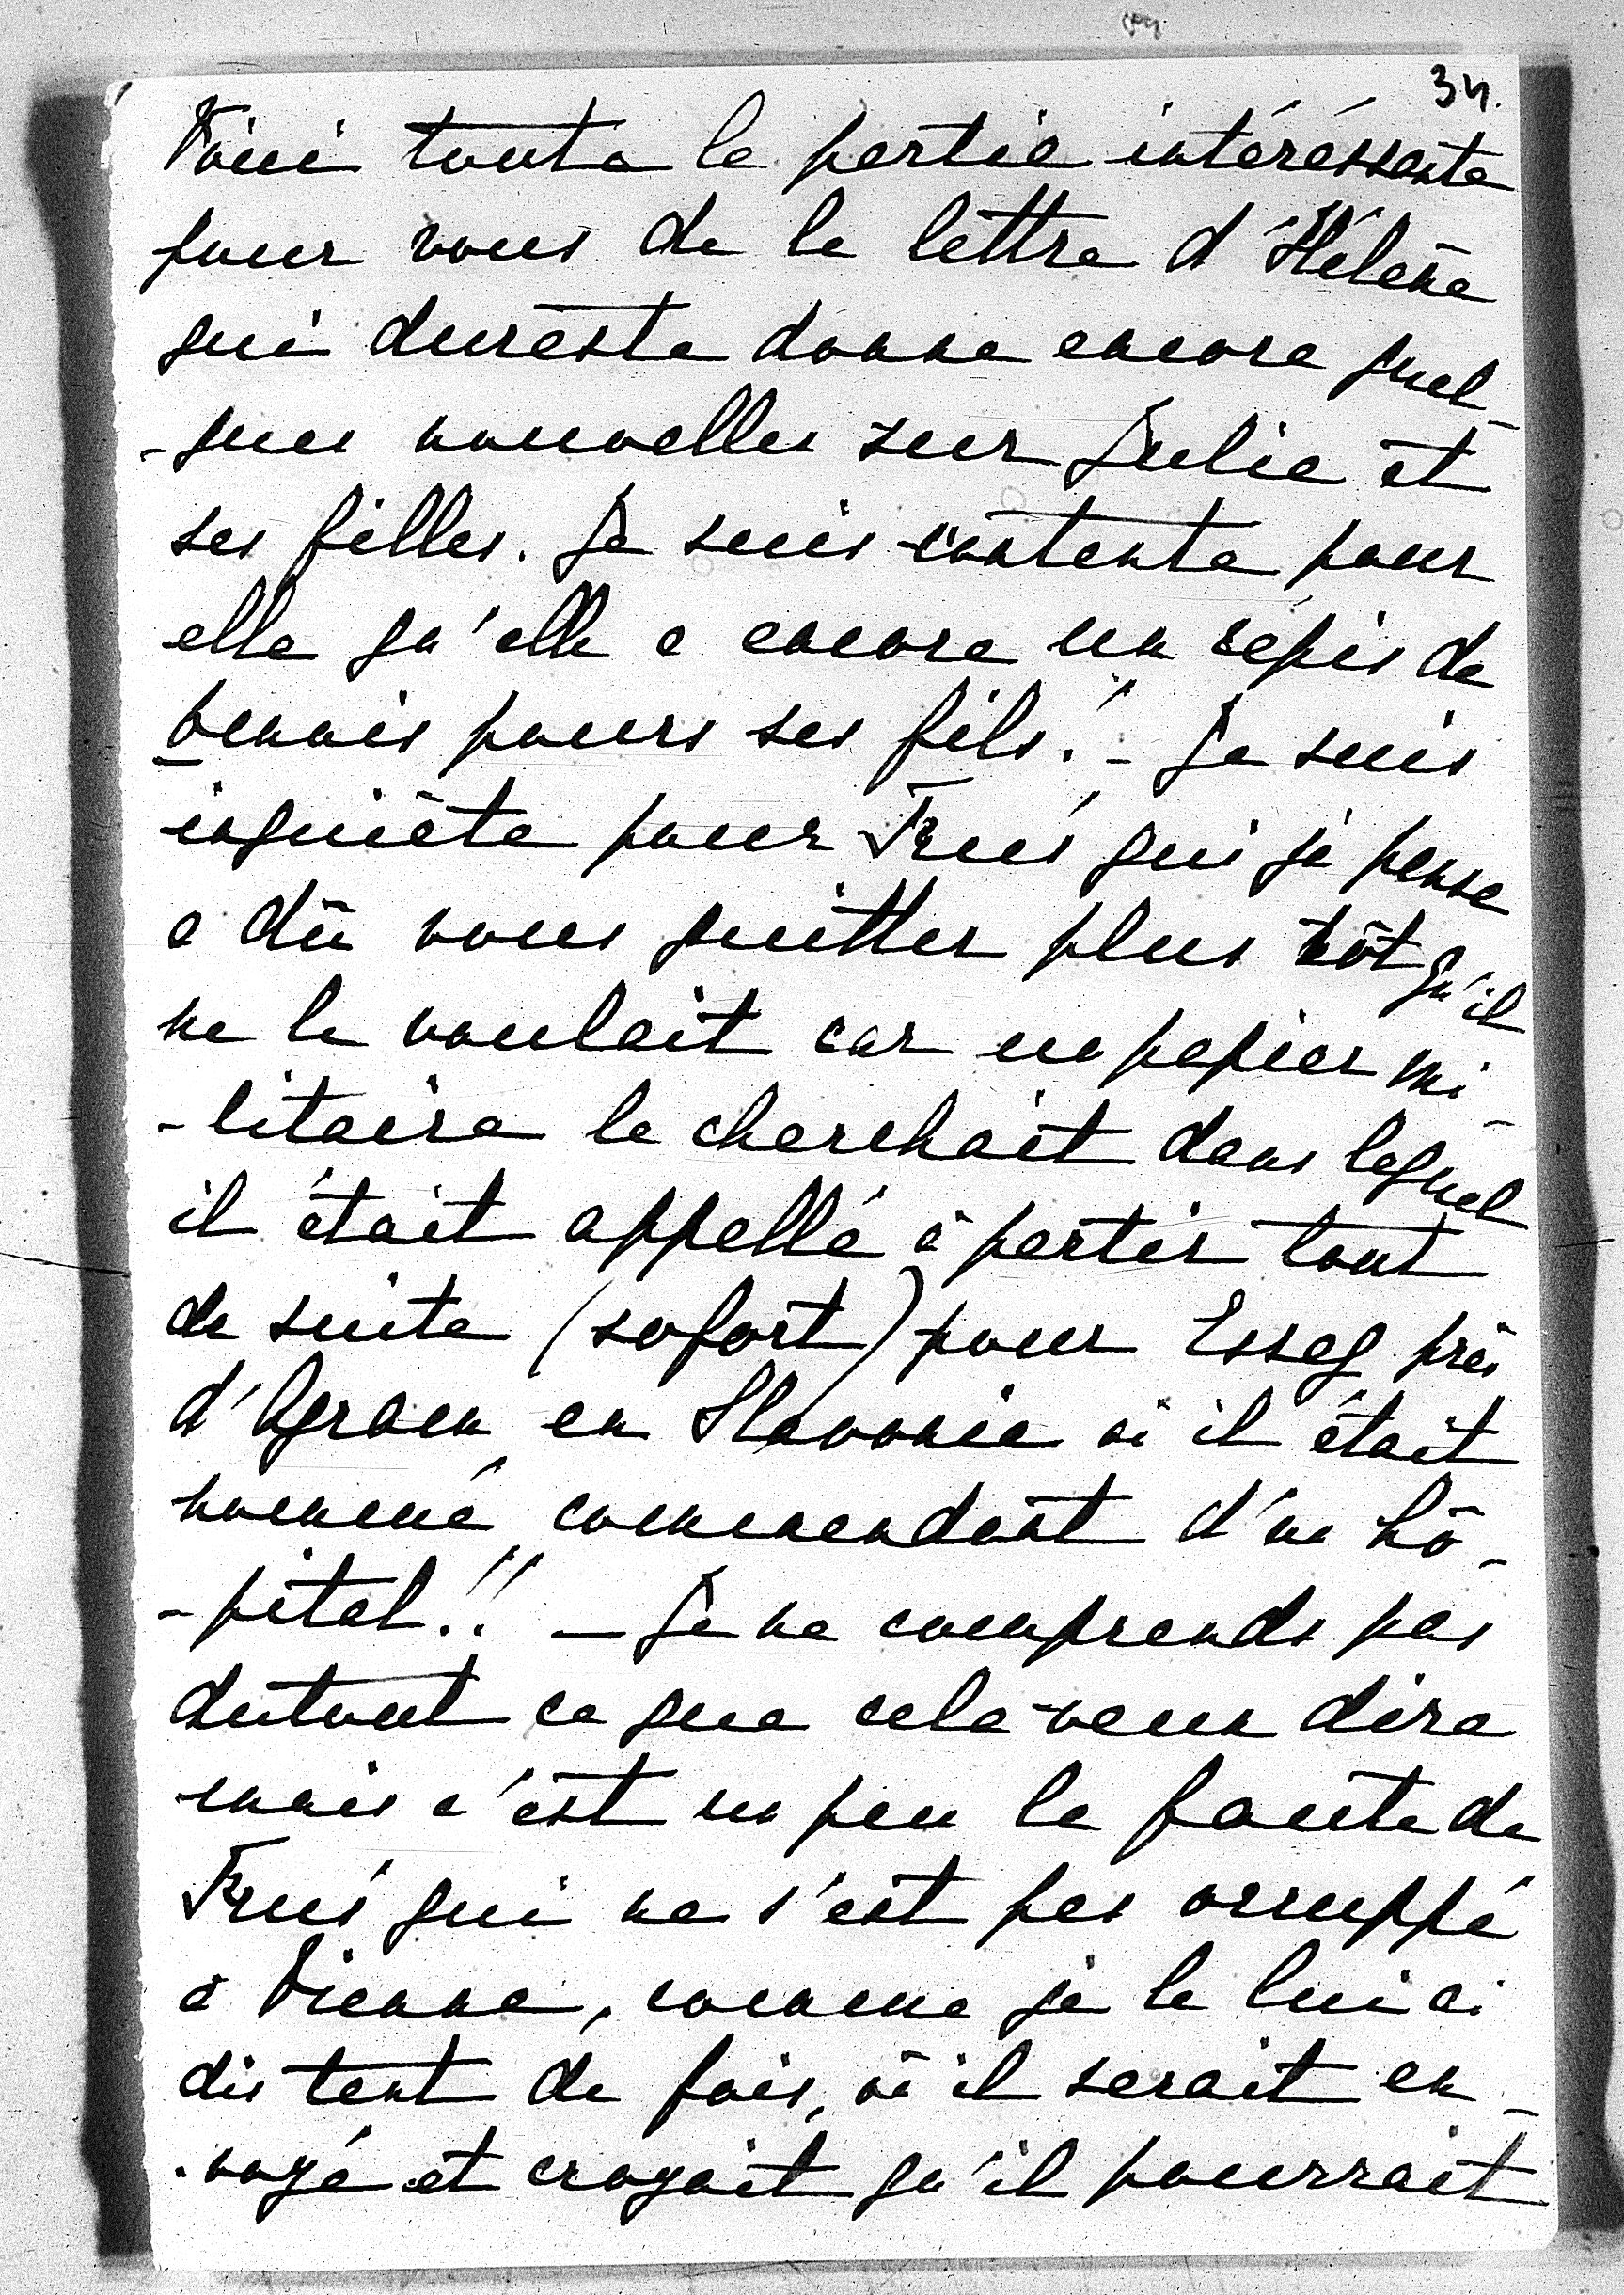 34.
Voici toute la partie intéréssante
pour vous de la lettre d'Hélène
qui dureste donne encore quel-
-ques nouvelles sur Julie et
ses filles. Je suis contente pour
elle qu'elle a encore un répis de
b mois pours ses fils! - Je suis
inquiète pour qui je pense
a dû vous quitter plus tôt qu'il
ne le voulait car un papier mi-
-litaire le cherchait dans lequel
il était appellé à partir tout
de suite (sofort) pour Esseg près
d'Agram en Slavonie où il était
nommé commandant d'un hô-
-pital!! — Je ne comprends pas
dutout ce que cela veux dire
mais c'est un peu la faute de
qui ne s'est pas occuppé
à Vienne, comme je le lui ai
dis tant de fois, où il serait en-
-voyé et croyait qu'il pourrait